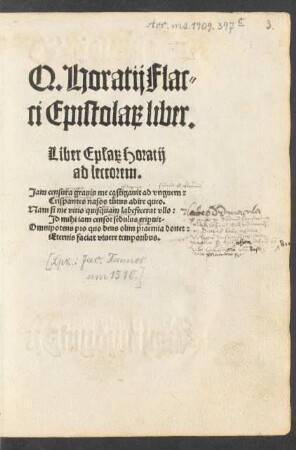 Acc. ms. 1909. 397
3.
Q. Horatij Flac⸗
ci Epistolaꝝ liber.
Liber Eplaꝝ Horatij
ad lectorem.
Iam censura grauis me castigauit ad vnguem:
Crispantes nasos tutus adire queo.
Nam si me vitio quisquam labefecerat vllo:
Id mihi iam censor sedulus eripuit.
Omnipotens pro quo deus olim praemia donet:
Eternis faciat viuere temporibus.
[Lpz.: Jac. Tanner
um 1510.]